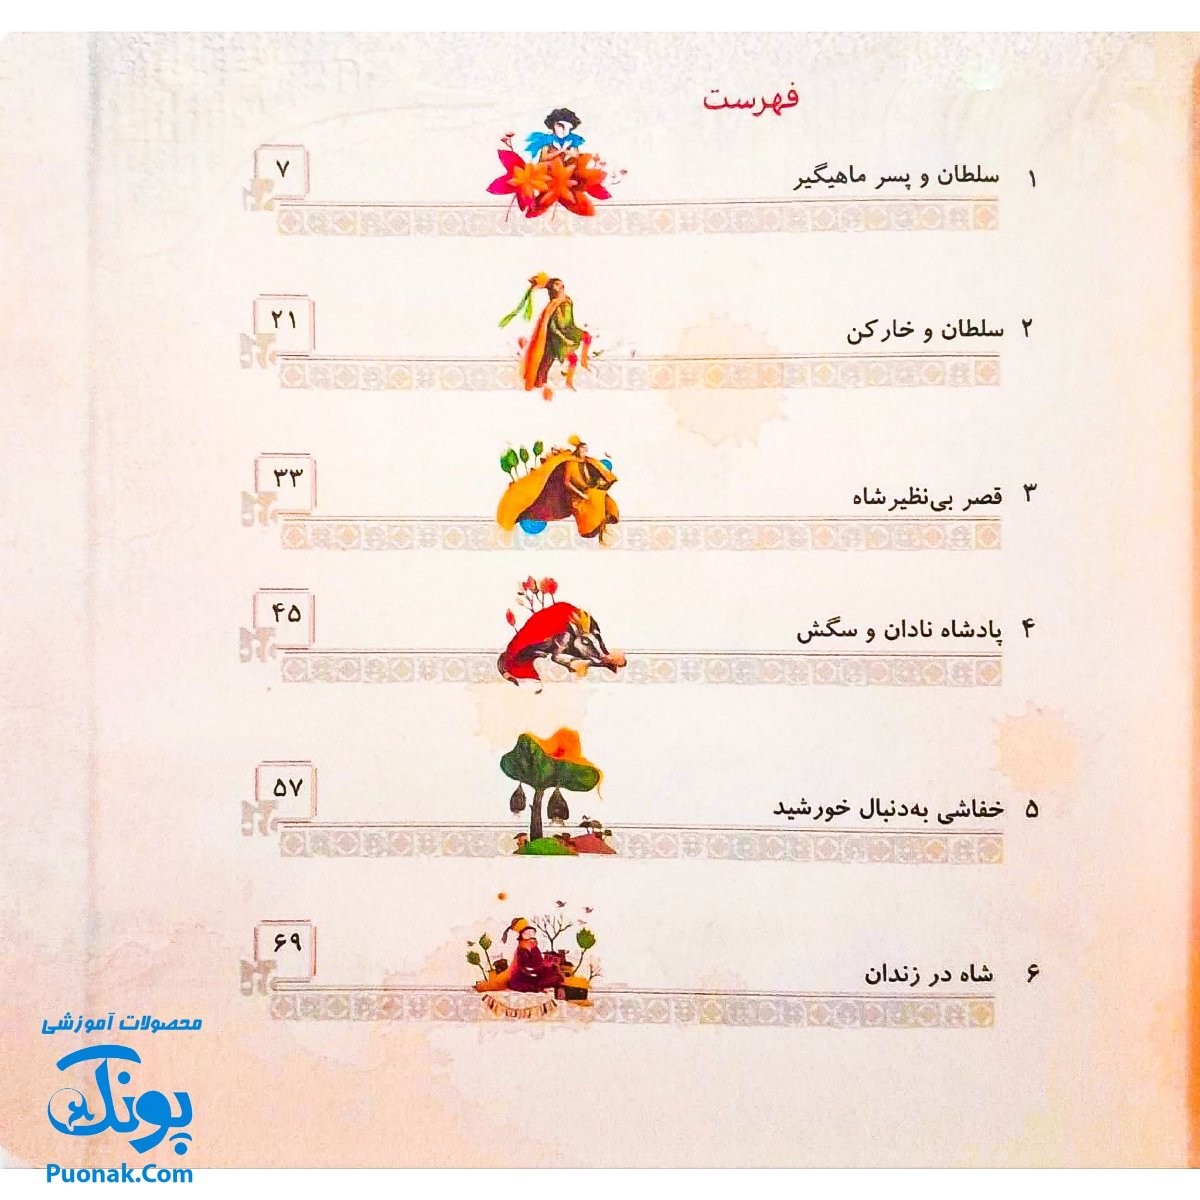 فهرست
۱ سلطان و پسر ماهیگیر ۷
۲ سلطان و خارکن ۲۱
۳ قصر بی‌نظیرشاه ۳۳
۴ پادشاه نادان و سگش ۴۵
۵ خفاشی به‌دنبال خورشید ۵۷
۶ شاه در زندان ۶۹
محصولات آموزشی
پونک
Puonak.Com